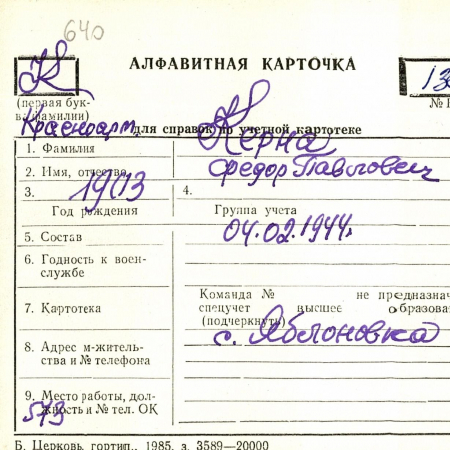 640
К
АЛФАВИТНАЯ КАРТОЧКА
13
(первая бук-
ва фамилии)
№ 
Красноарм.
для справок по учетной картотеке
1. Фамилия Керна
2. Имя, отчество Федор Павлович
3. 1913 4.
Год рождения Группа учета
04.02.1944г
5. Состав
6. Годность к воен-
службе
Команда № не предназнач
7. Картотека спецучет высшее образова
(подчеркнуть)
с. Яблоновка
8. Адрес м-житель-
ства и № телефона
9. Место работы, дол-
жность и № тел. ОК
573
Б. Церковь, гортип., 1985, з. 3589—20000